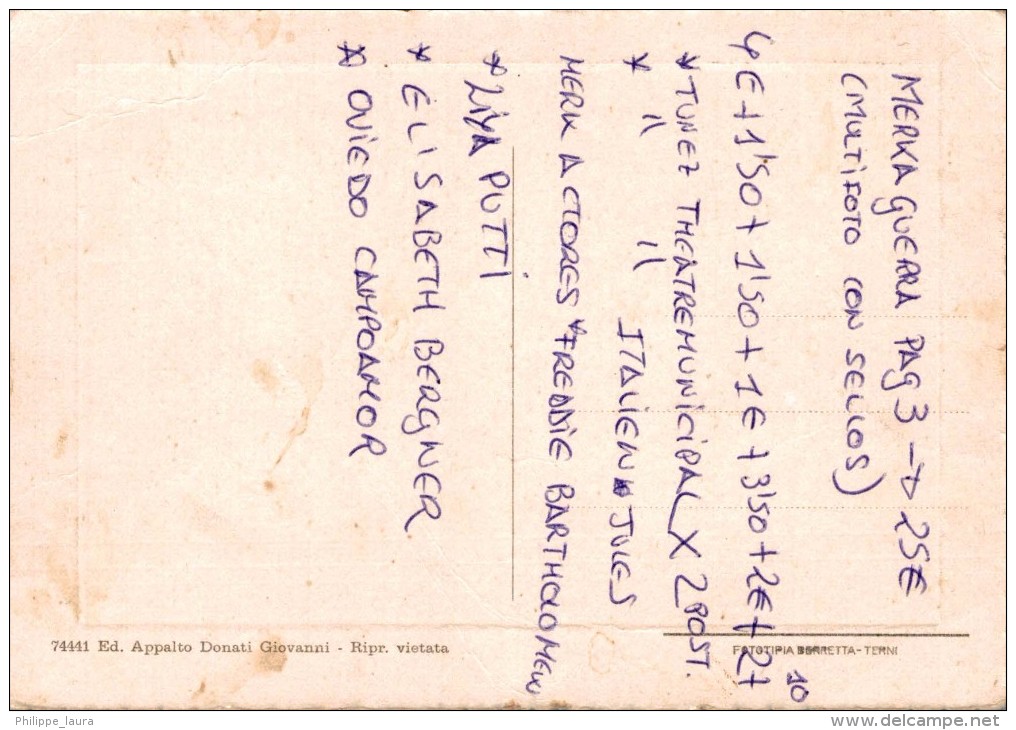 MERKA GUERRA PAG 3 → 25€
(MULTIFOTO CON SELLOS)
4€ + 1'50 + 1'50 + 1€ + 3'50 + 2€ + 2+
10
* TUNEZ THEATRE MUNICIPAL X 2 POST.
* " " ITALIEN JULES
MERK ACTORES * FREDDIE BARTHOLOMEW
* LIYA PUTTI
* ELISABETH BERGNER
* OVIEDO CAMPOAMOR
74441 Ed. Appalto Donati Giovanni - Ripr. vietata
FOTOTIPIA BERRETTA - TERNI
Philippe_laura
www.delcampe.net